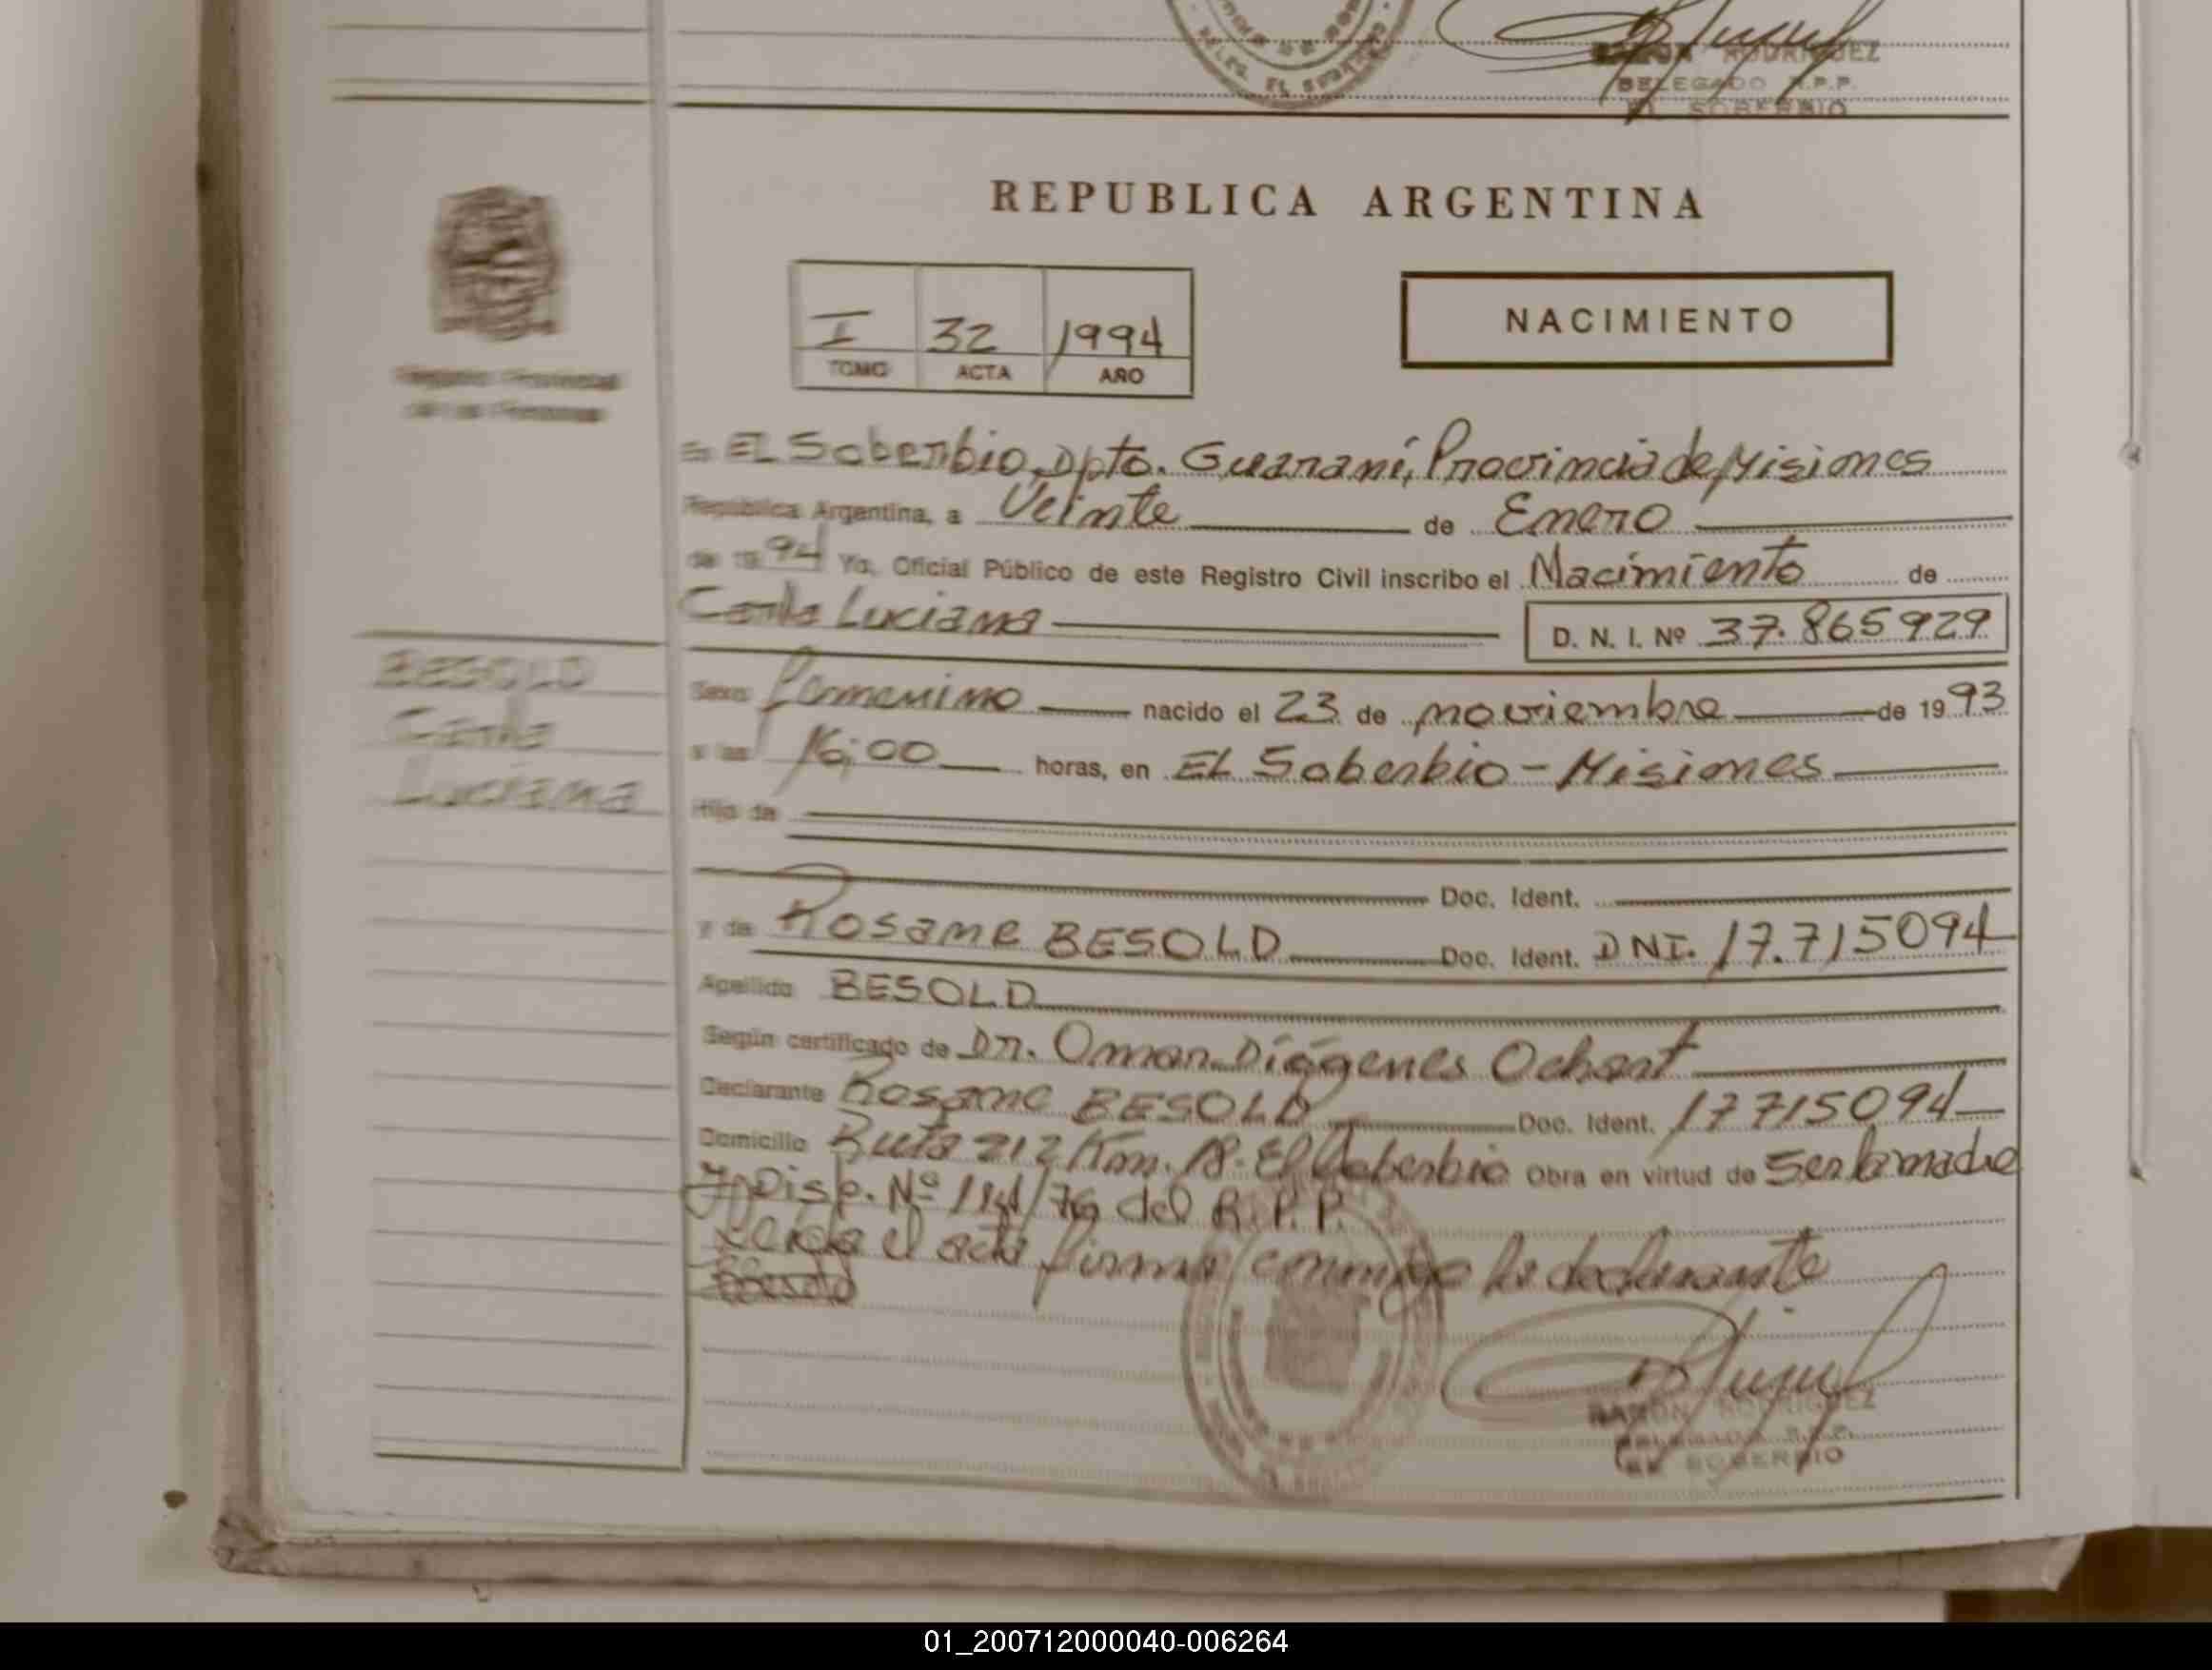 RAMON RODRIGUEZ
DELEGADO R.P.P.
EL SOBERBIO
REPUBLICA ARGENTINA
I 32 1994
TOMO ACTA AÑO
NACIMIENTO
Registro Provincial
de las Personas
En EL Soberbio, Dpto. Guaraní, Provincia de Misiones
República Argentina, a Veinte de Enero
de 1994 Yo, Oficial Público de este Registro Civil inscribo el Nacimiento de
Carla Luciana D. N. I. Nº 37.865929
BESOLD
Carla
Luciana
Sexo femenino nacido el 23 de noviembre de 1993
a las 16:00 horas, en EL Soberbio - Misiones
Hijo de
Doc. Ident.
y de Rosane BESOLD Doc. Ident. DNI. 17.715094
Apellido BESOLD
Según certificado de Dr. Omar Diógenes Ochart
Declarante Rosane BESOLD Doc. Ident. 17715094
Domicilio Ruta 212 Km. El Soberbio Obra en virtud de Ser la madre
Disp. Nº del R.P.P.
Leida el acta firma conmigo la declarante
RBesold
RAMON RODRIGUEZ
DELEGADO R.P.P.
EL SOBERBIO
01_200712000040-006264